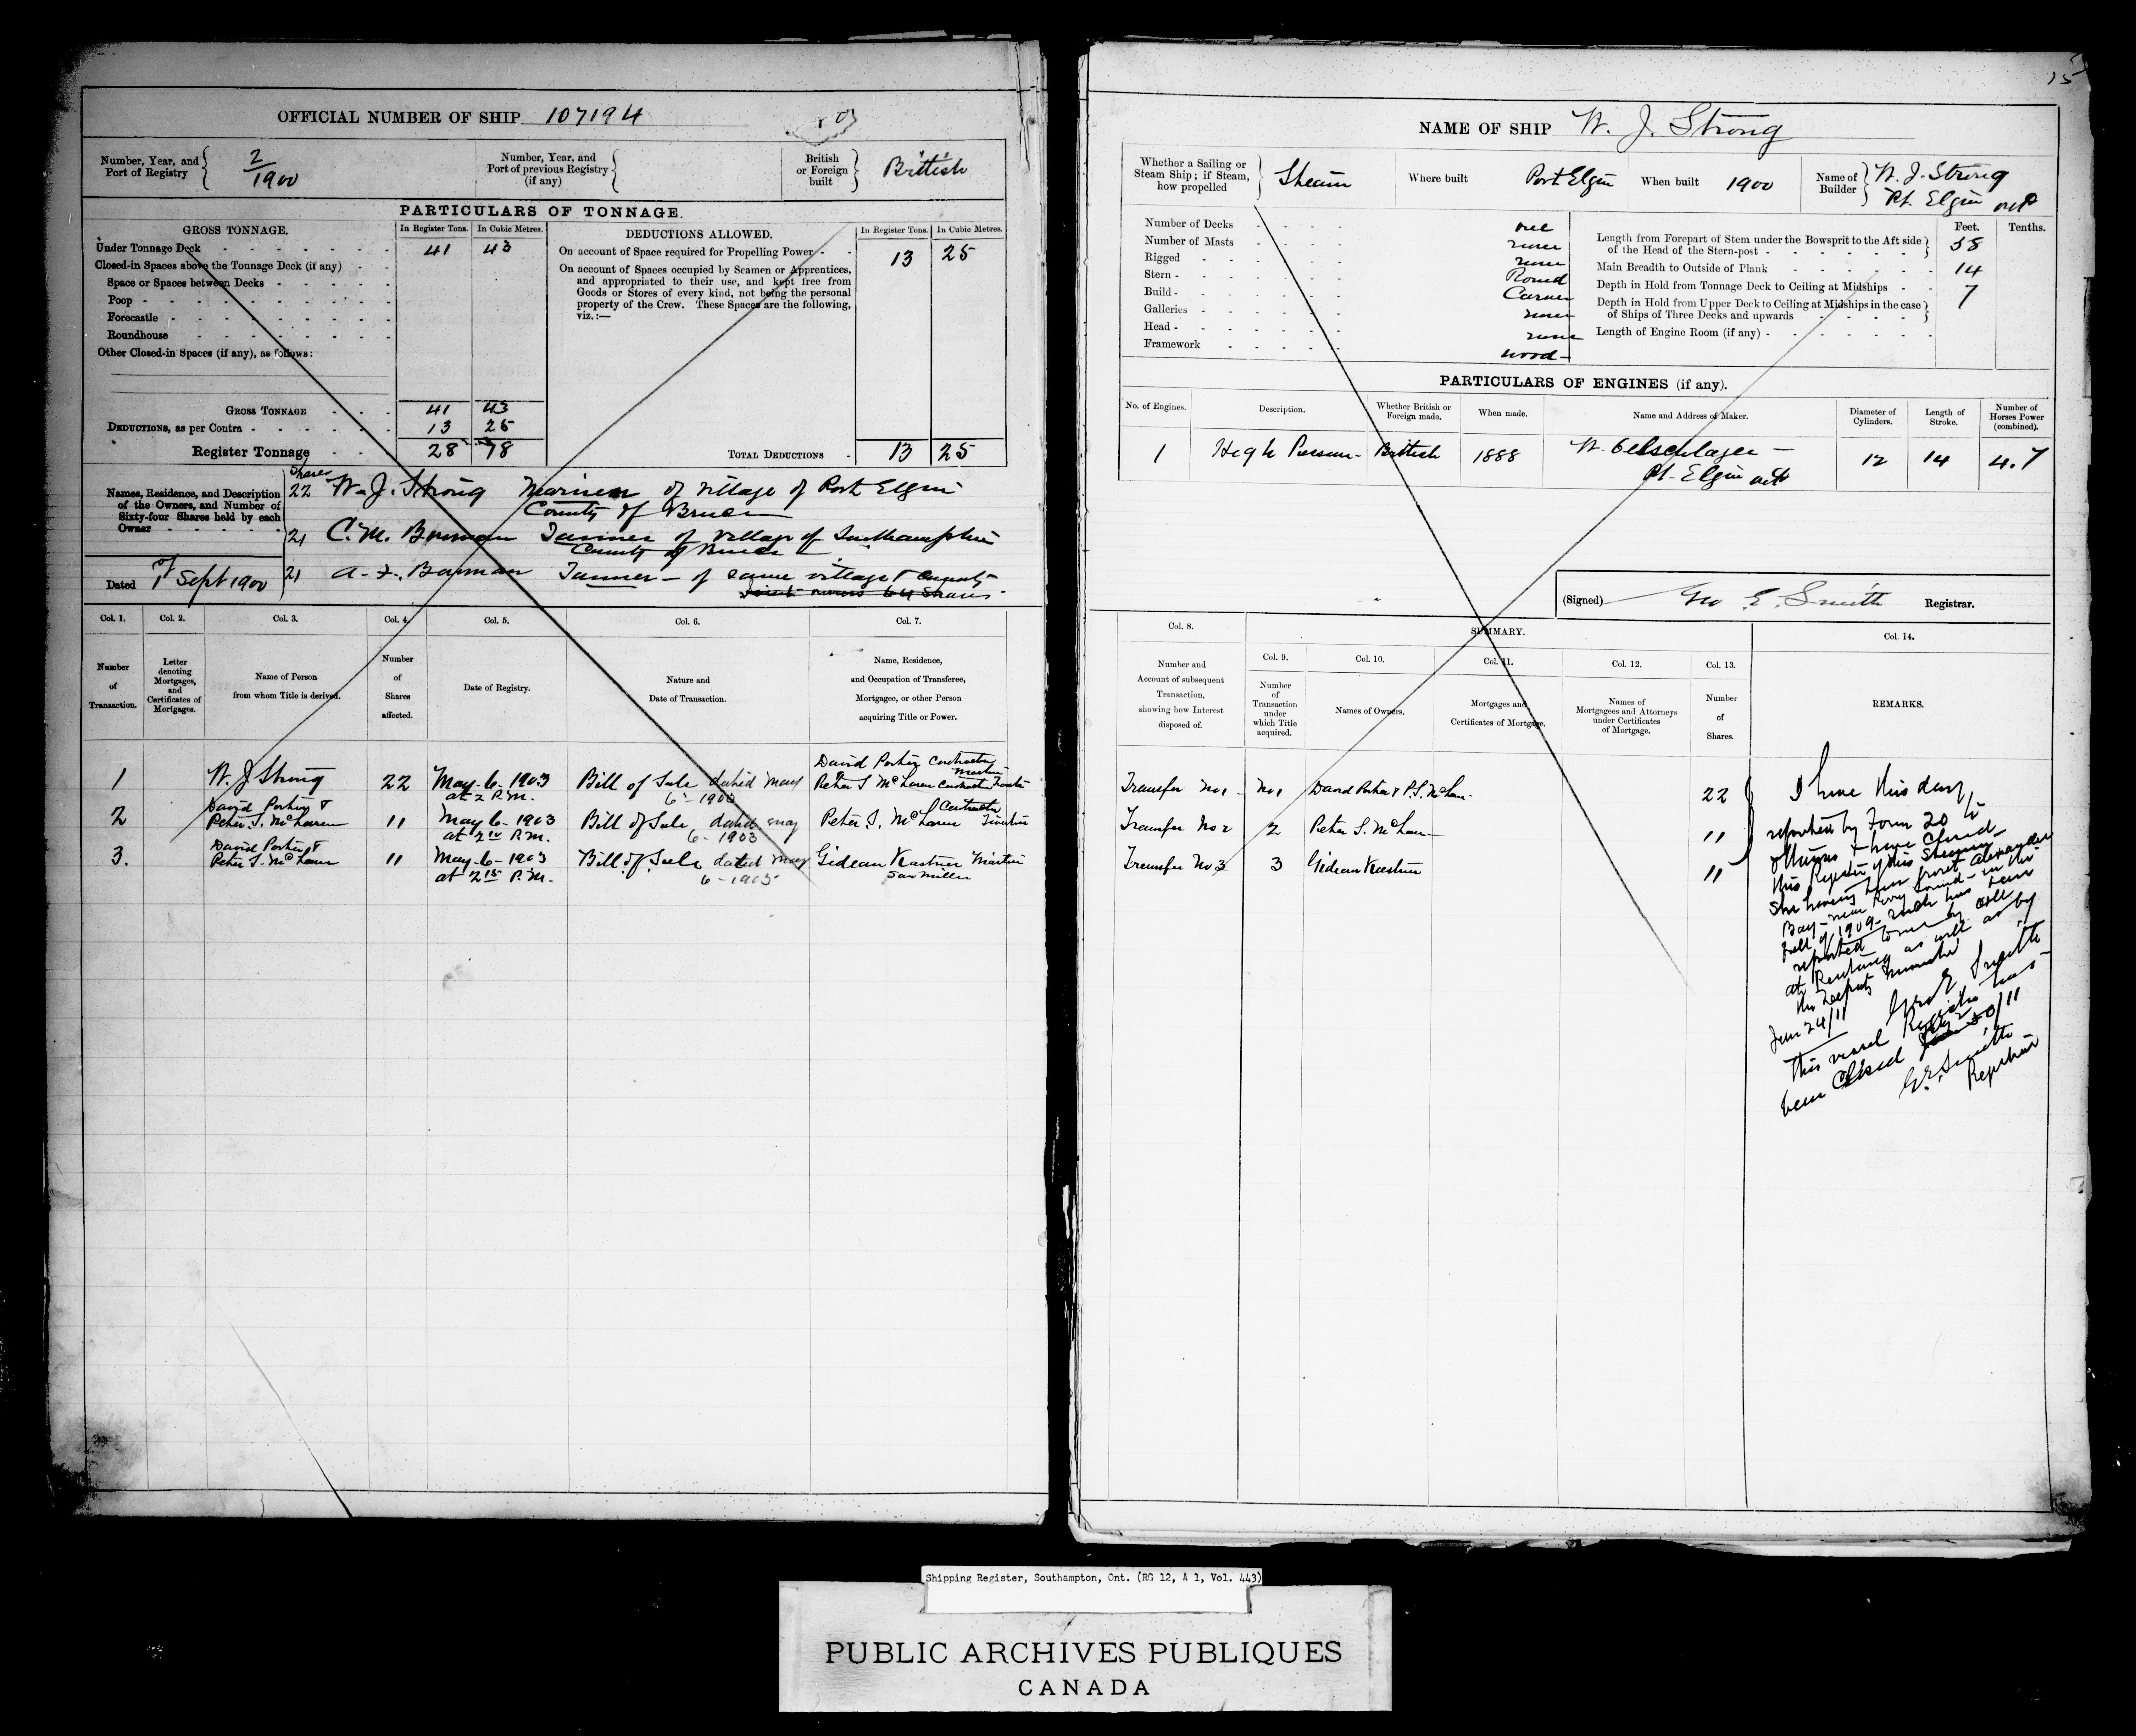 OFFICIAL NUMBER OF SHIP 107194
Number, Year, and Port of Registry 2/1900
Number, Year, and Port of previous Registry (if any)
British or Foreign built British
PARTICULARS OF TONNAGE.
GROSS TONNAGE. In Register Tons. In Cubic Metres.
Under Tonnage Deck 41 43
Closed-in Spaces above the Tonnage Deck (if any)
Space or Spaces between Decks
Poop
Forecastle
Roundhouse
Other Closed-in Spaces (if any), as follows:
GROSS TONNAGE 41 43
DEDUCTIONS, as per Contra 13 25
Register Tonnage 28 98
DEDUCTIONS ALLOWED. In Register Tons. In Cubic Metres.
On account of Space required for Propelling Power 13 25
On account of Spaces occupied by Seamen or Apprentices,
and appropriated to their use, and kept free from
Goods or Stores of every kind, not being the personal
property of the Crew. These Spaces are the following,
viz.:—
TOTAL DEDUCTIONS 13 25
Names, Residence, and Description
of the Owners, and Number of
Sixty-four Shares held by each
Owner
Shares
22 W. J. Strong Mariner of village of Port Elgin
County of Bruce
21 C. M. Bowman Tanner of village of Southampton
County of Bruce
Dated 1st Sept 1900
21 A. F. Bowman Tanner - of same village & County
Col. 1. Col. 2. Col. 3. Col. 4. Col. 5. Col. 6. Col. 7.
Number of Transaction.
Letter denoting Mortgages, and Certificates of Mortgages.
Name of Person from whom Title is derived.
Number of Shares affected.
Date of Registry.
Nature and Date of Transaction.
Name, Residence, and Occupation of Transferee, Mortgagee, or other Person acquiring Title or Power.
1 W. J Strong 22 May - 6 - 1903 at 2 P.M. Bill of Sale dated May 6 - 1903 David Porter Contractor Peter S McLaren Contractor
2 David Porter & Peter S. McLaren 11 May 6 - 1903 at 2 10 P.M. Bill of Sale dated May 6 - 1903 Peter S. McLaren Contractor
3. David Porter & Peter S. McLaren 11 May - 6 - 1903 at 2 15 P.M. Bill of Sale dated May 6 - 1903 Gidean Kastner Saw Miller
15
NAME OF SHIP W. J. Strong
Whether a Sailing or Steam Ship; if Steam, how propelled Steam
Where built Port Elgin
When built 1900
Name of Builder W. J. Strong Pt. Elgin Ont
Number of Decks one
Number of Masts none
Rigged none
Stern Round
Build Carvel
Galleries none
Head none
Framework wood
Feet. Tenths.
Length from Forepart of Stem under the Bowsprit to the Aft side
of the Head of the Stern-post 58
Main Breadth to Outside of Plank 14
Depth in Hold from Tonnage Deck to Ceiling at Midships 7
Depth in Hold from Upper Deck to Ceiling at Midships in the case
of Ships of Three Decks and upwards
Length of Engine Room (if any)
PARTICULARS OF ENGINES (if any).
No. of Engines. Description. Whether British or Foreign made. When made. Name and Address of Maker. Diameter of Cylinders. Length of Stroke. Number of Horses Power (combined).
1 High Pressure British 1888 W. Oelschlager - Pt. Elgin Ont 12 14 4.7
(Signed) Geo E. Smith Registrar.
SUMMARY.
Col. 8. Col. 9. Col. 10. Col. 11. Col. 12. Col. 13. Col. 14.
Number and Account of subsequent Transaction, showing how Interest disposed of.
Number of Transaction under which Title acquired.
Names of Owners.
Mortgages and Certificates of Mortgage.
Names of Mortgagees and Attorneys under Certificates of Mortgage.
Number of Shares.
REMARKS.
Transfer No 1 No 1 David Porter & P. S. McLaren 22
Transfer No 2 2 Peter S. McLaren 11
Transfer No 3 3 Gidean Kastner 11
I have this day
reported by Form 20 to
Ottawa & have closed
this Register of this Steamer
She having been
Bay - near Parry Sound - in the
fall of 1909 - such has been
reported to me by
at Penetang as well as by
the Deputy Minister
Jan 24/11 Geo E Smith
This vessel Register has
been closed
G. E. Smith
Registrar
Shipping Register, Southampton, Ont. (RG 12, A 1, Vol. 443)
PUBLIC ARCHIVES PUBLIQUES
CANADA